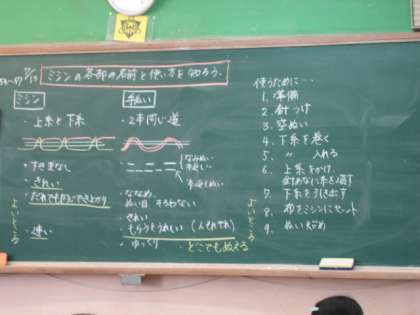 ミシンの各部の名前と使い方を知ろう。
ミシン
・上糸と下糸
・すきまなし
・きれい
だれでも同じでき上がり
・速い
よいところ
手ぬい
・2本同じ道
なみぬい
本返しぬい
ななめ
ぬい目 そろわない
きれい
もらうとうれしい（人それぞれ）
・ゆっくり
・どこでもぬえる
よいところ
使うために…
1. 準備
2. 針つけ
3. 空ぬい
4. 下糸を巻く
5. 〃 入れる
6. 上糸をかけ
針あなに糸を通す
7. 下糸を引き出す
8. 布をミシンにセット
9. ぬい始め